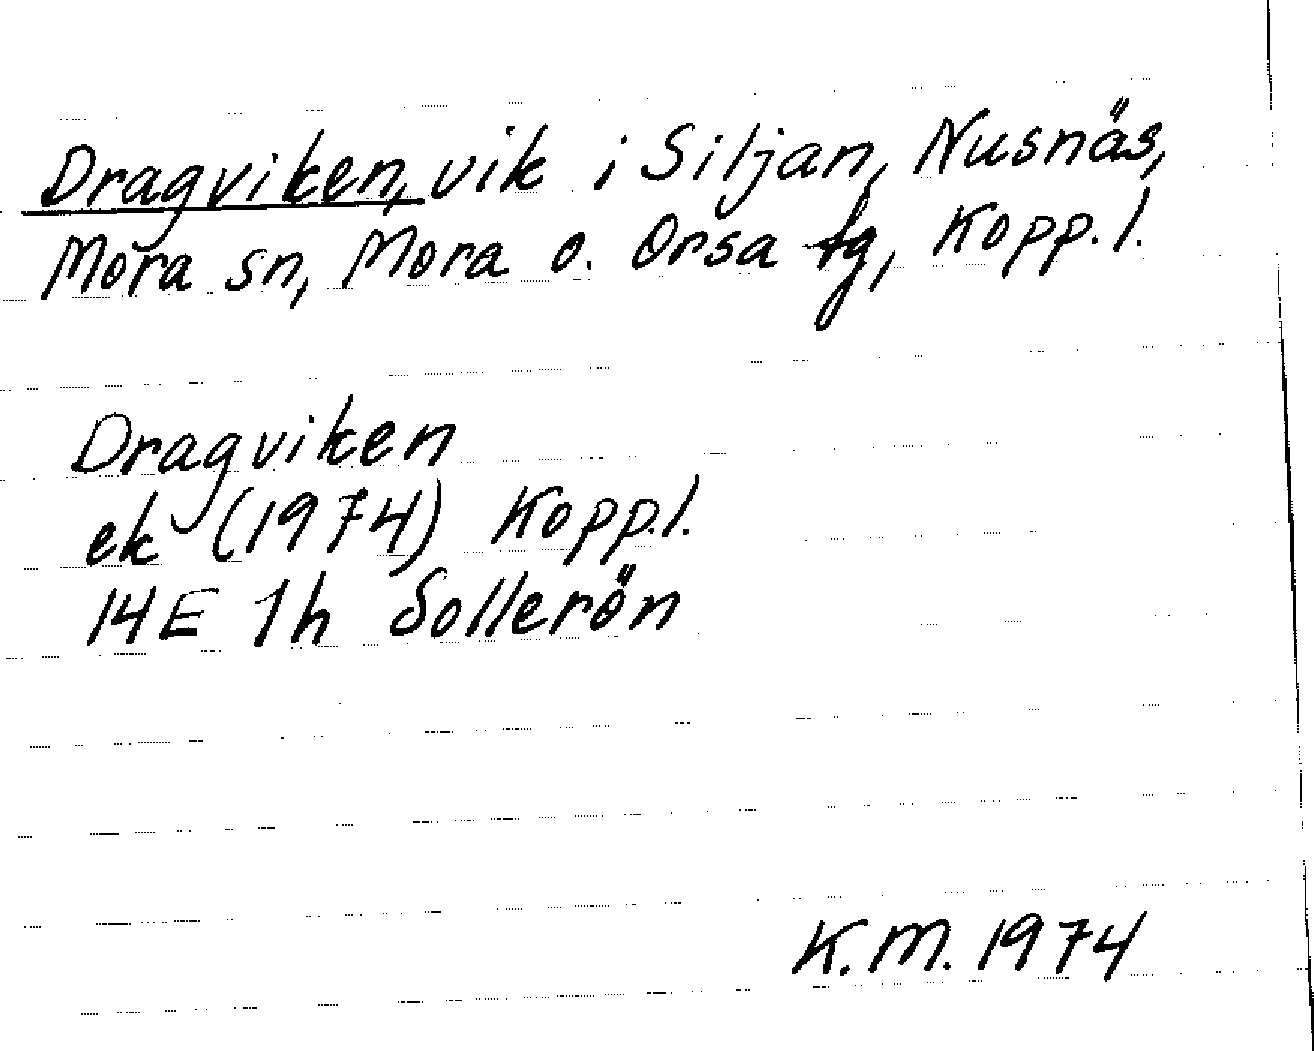 Dragviken, vik i Siljan, Nusnäs,
Mora sn, Mora o. Orsa tg, Kopp. l.
Dragviken
ek (1974) Kopp. l.
14E 1h Sollerön
K.M. 1974